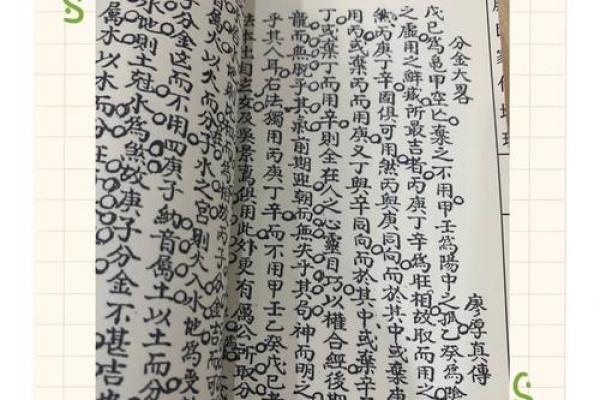 家傳地理
分金大畧
廖尊真傳
戊己為龜甲空亡棄之不用甲壬為陽中之孤乙癸為陰
之虛用之鮮藏所最吉者丙庚丁辛為旺相故取而用之
然丙庚丁辛固俱可用然丙與庚同向而於其中或棄庚
用丙或棄丙而用庚又丁與辛同向而於其中或棄辛
丁或棄丁而用辛則全在人之心靈目巧以權合經後
龍而無脫乎其氣前期迎朝而無失乎其局神而明之
乎其人耳右法獨用丙庚丁辛而不用甲壬乙癸戊己者
法本出自玄女及吳景鸞俱用此外更有屬公所取分
丙子分金吉而可
以火而分子水之宮則火入水地為受
分金這而不用四庚子納音屬土以土而分
水地則土尅水為煞故庚子分金不甚吉也
屬木以木而分